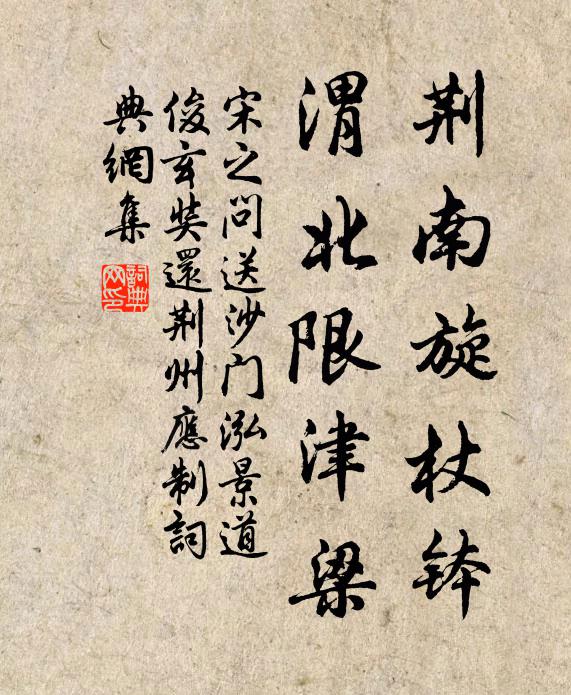 荆南旋杖钵
渭北限津梁
宋之问送沙门泓景道
俊玄奘還荆州應制詞
典網集
詞典網印